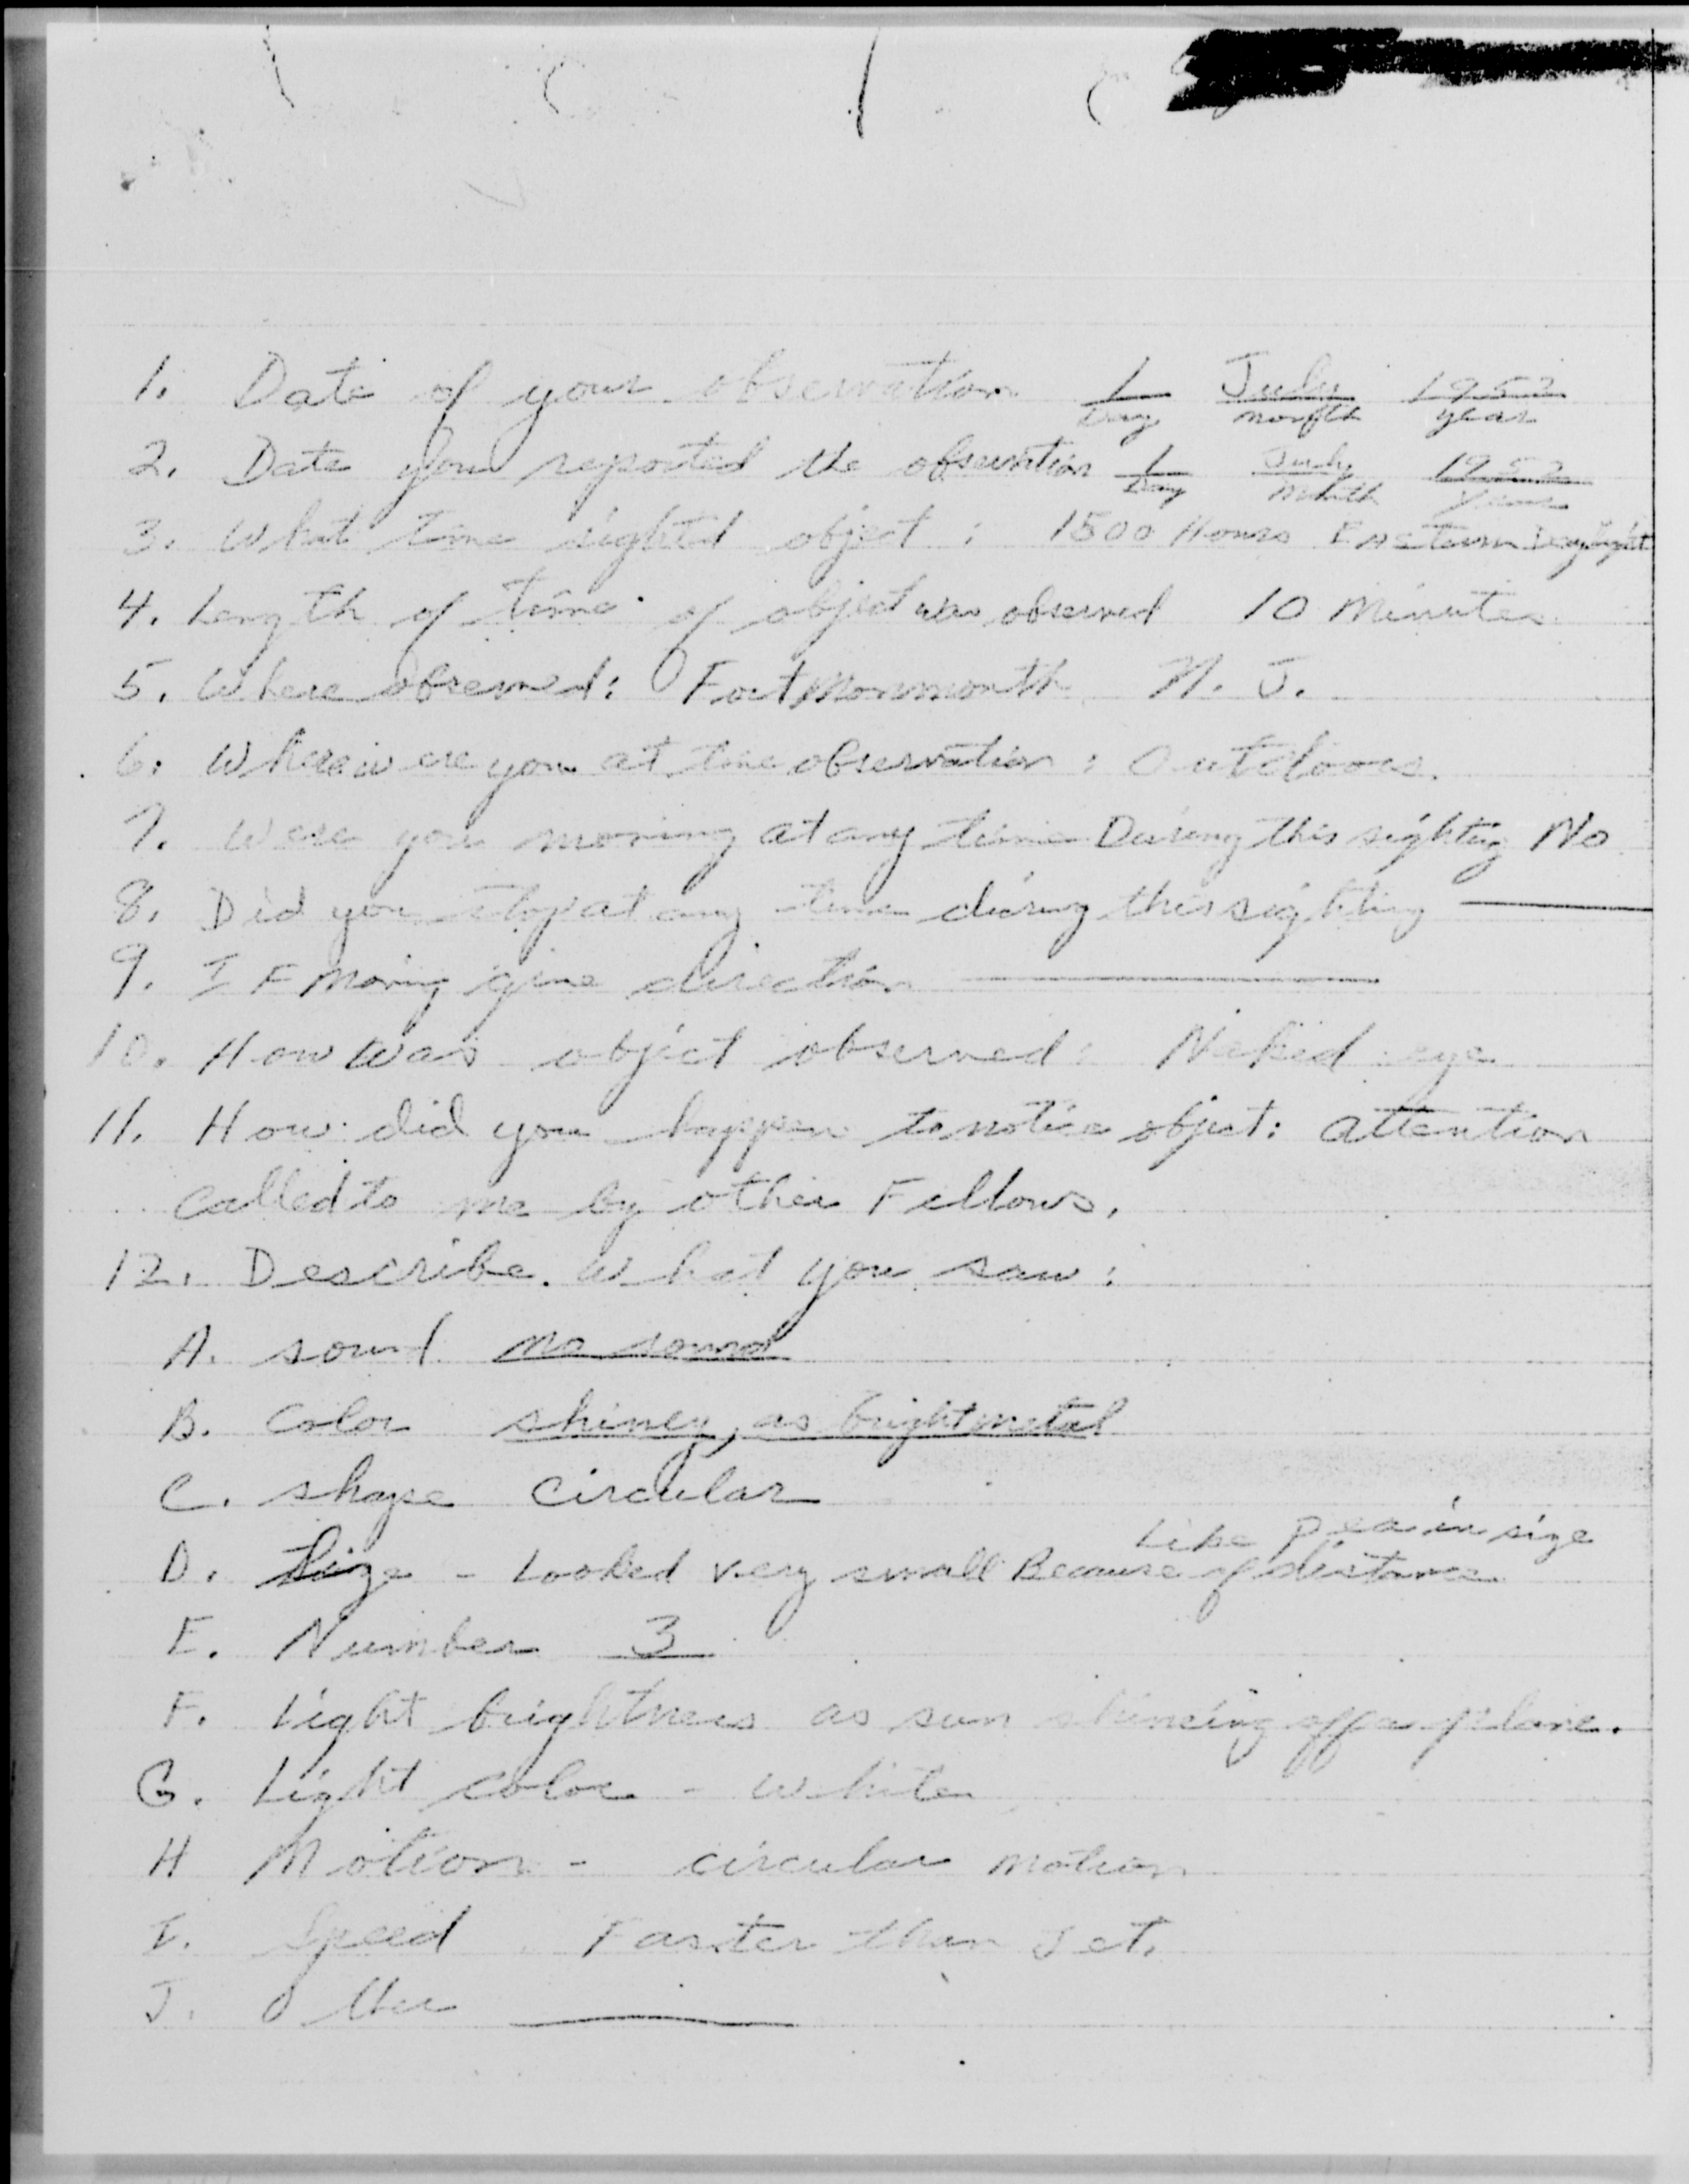 1. Date of your observation 1 July 1952
Day month year
2. Date you reported the observation 1 July 1952
Day Month Year
3. What time sighted object : 1500 Hours Eastern Daylight
4. Length of time of object was observed 10 Minutes
5. Where observed: Fort Monmouth N. J.
6. Where were you at time observation : Outdoors.
7. Were you moving at any time During this sighting No
8. Did you stop at any time during this sighting —
9. IF moving give direction —
10. How was object observed: Naked eye
11. How did you happen to notice object: attention
called to me by other Fellows.
12. Describe what you saw:
A. sound no sound
B. Color shiney, as bright metal
C. shape circular
Like pea in size
D. Size - Looked very small Because of distance
E. Number 3
F. Light brightness as sun shineing off a plane.
G. Light color - white
H Motion - circular motion
I. Speed Faster than Jet.
J. Other —